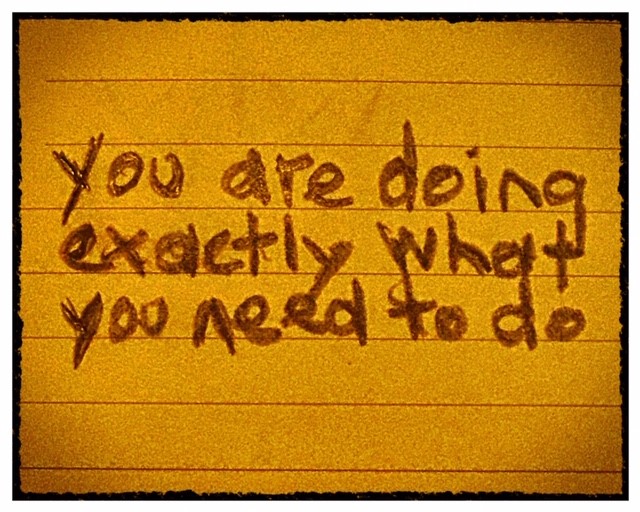 you are doing
exactly what
you need to do